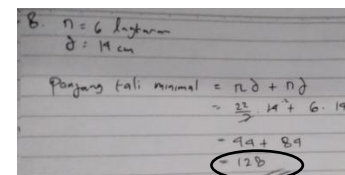 8. n = 6 lingkaran
d = 14 cm
Panjang tali minimal = πd + nd
= 22/7 14² + 6 . 14
= 44 + 84
= 128